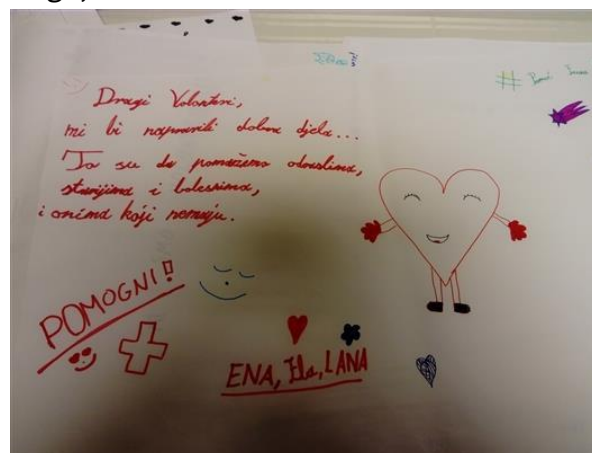 Dragi Volonteri,
mi bi napravili dobra djela...
To su da pomažemo odraslima,
starijima i bolesnima,
i onima koji nemaju.
POMOGNI!
ENA, Ela, LANA